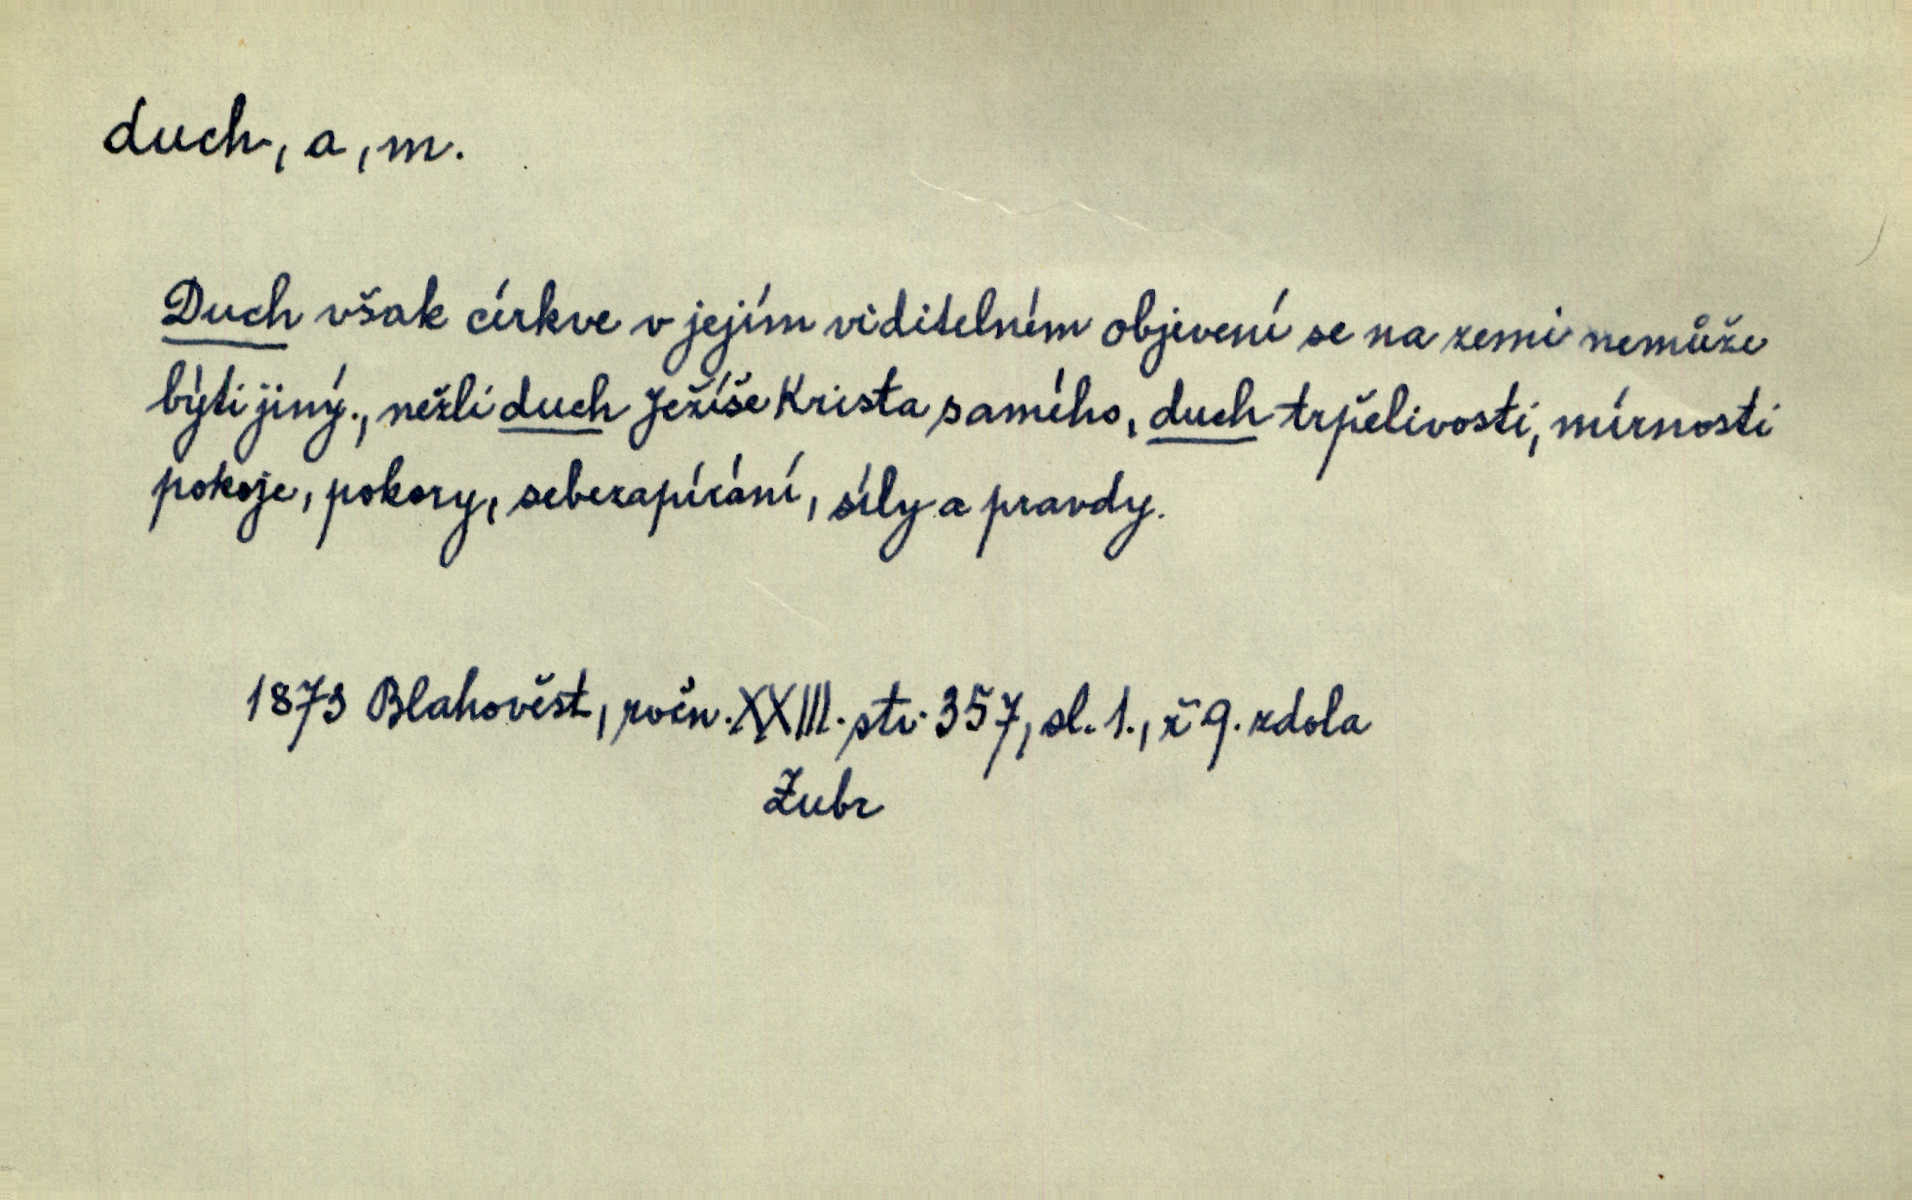 duch, a, m.
Duch však církve v jejím viditelném objevení se na zemi nemůže
býti jiný., nežli duch Ježíše Krista samého, duch trpělivosti, mírnosti
pokoje, pokory, sebezapírání, síly a pravdy.
1873 Blahověst, ročn. XXIII. str. 357, sl. 1., ř 9. zdola
Zubr